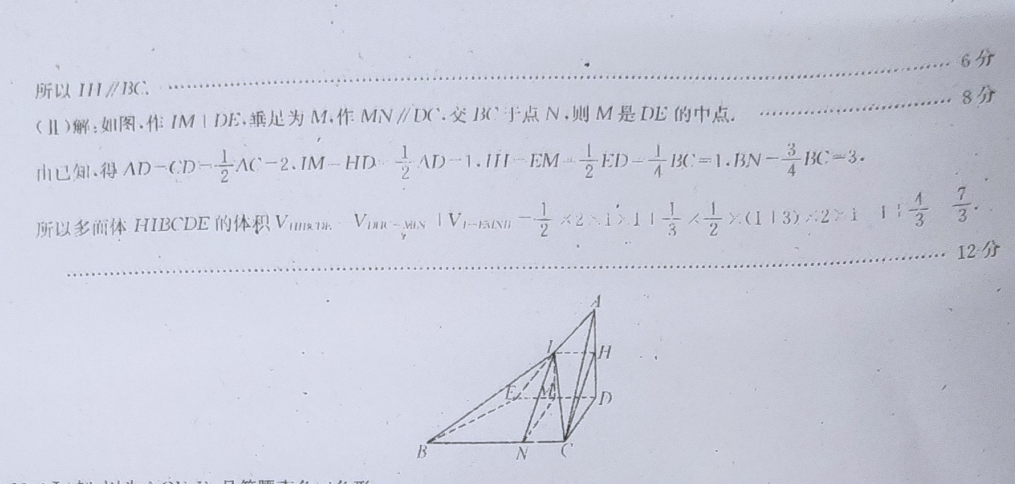 所以 HI∥BC. …… 6分
(Ⅱ)解:如图,作 IM⊥DE,垂足为 M,作 MN∥DC,交 BC 于点 N,则 M 是 DE 的中点. …… 8分
由已知,得 AD=CD=1/2AC=2,IM=HD=1/2AD=1,HI=EM=1/2ED=1/4BC=1,BN=3/4BC=3.
所以多面体 HIBCDE 的体积 =1/2×2×1×1+1/3×1/2×(1+3)×2×1=1+4/3=7/3.
…… 12分
A
I H
E M D
B N C